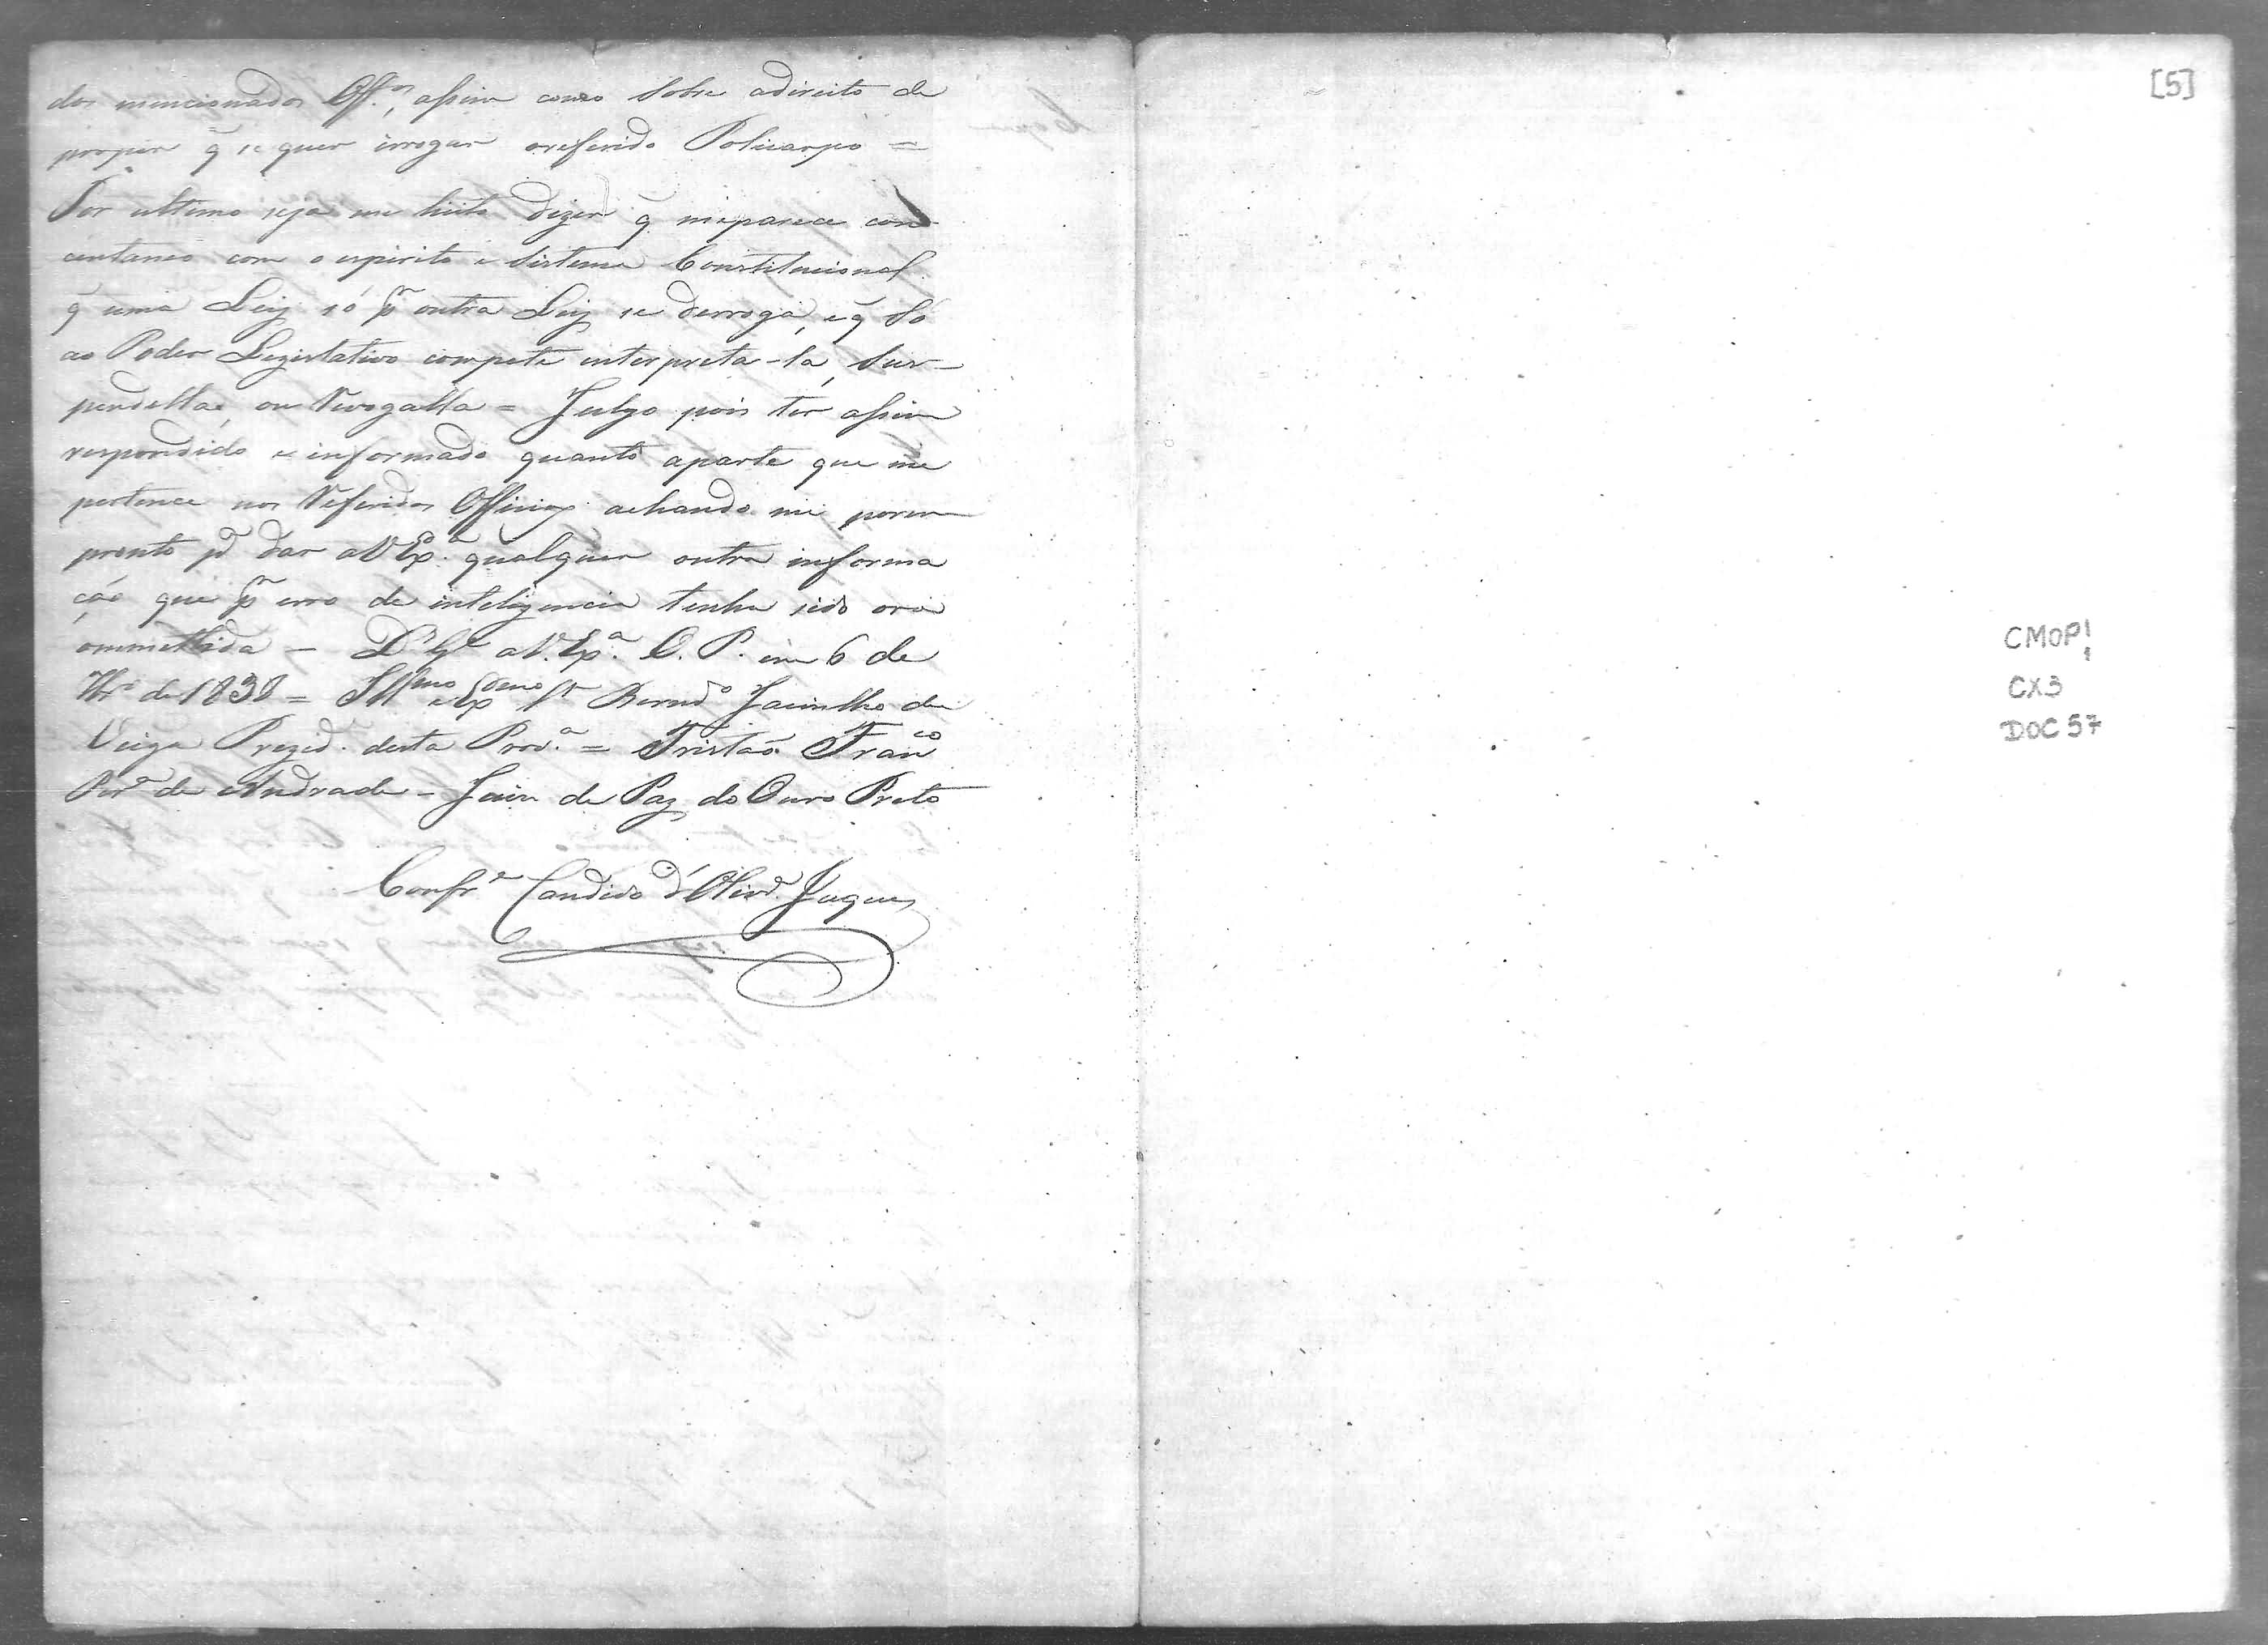 dos mencionados Off.os, assim como sobre adireito de
propor q̃ se quer irrogar oreferido Policarpo =
Por ultimo seja me licito dizer q̃ meparece con-
centaneo com o espirito e sistema Constitucional
q̃ uma Ley só pr outra Ley se derroga, e q̃ só
ao Poder Legislativo compete interpreta-la, sus-
pendella, ou Revogalla = Julgo pois ter assim
respondido e informado quanto aparte que me
pertence nos Referidos Officios achando me porem
pronto pa dar aV Exa. qualquer outra informa
ção que pr erro de inteligencia tenha sido ora
ommettida – Ds Ge a V. Exa. O. P. em 6 de
de 1838 = Illmo e Exmo Sr Berndo Jacintho da
Veiga Prezid. desta Prova. = Tristão Franco
Pera de Andrade – Juiz de Paz do Ouro Preto
Confre Candido d'Olivra. Jaques
[5]
CMOP!
CX3
DOC 57